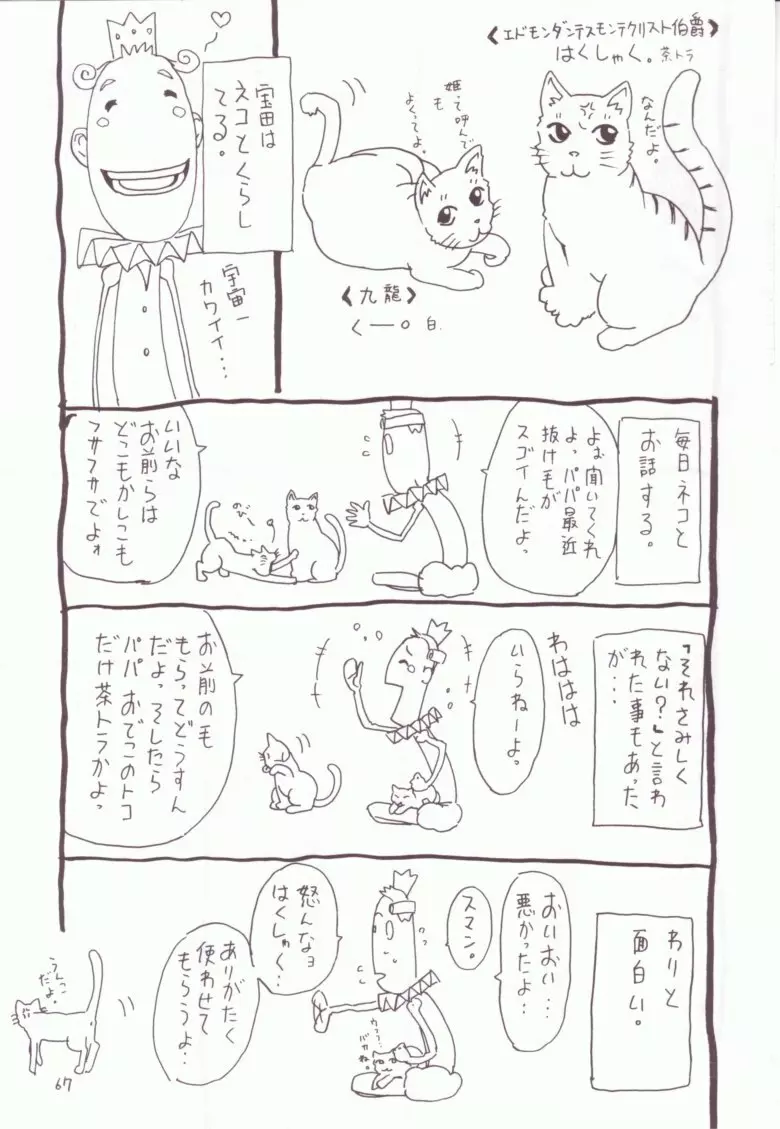 《エドモンダンテスモンテクリスト伯爵》
はくしゃく。茶トラ
なんだよ。
姫って呼んで
も
よくってよ。
《九龍》
くーロ 白
宝田は
ネコとくらし
てる。
宇宙一
カワイイ…
毎日ネコと
お話する。
よお聞いてくれ
よっパパ最近
抜け毛が
スゴイんだよっ
のびー
いいな
お前らは
どこもかしこも
フサフサでよォ
「それさみしく
ない?」と言わ
れた事もあった
が…
わははは
いらねーよっ
お前の毛
もらってどうすん
だよっそしたら
パパおでこのトコ
だけ茶トラかよっ
わりと
面白い。
おいおい…
悪かったよ…
スマン。
怒んなョ
はくしゃく…
ありがたく
使わせて
もらうよ…
バカね。
うんっ
だよ。
67